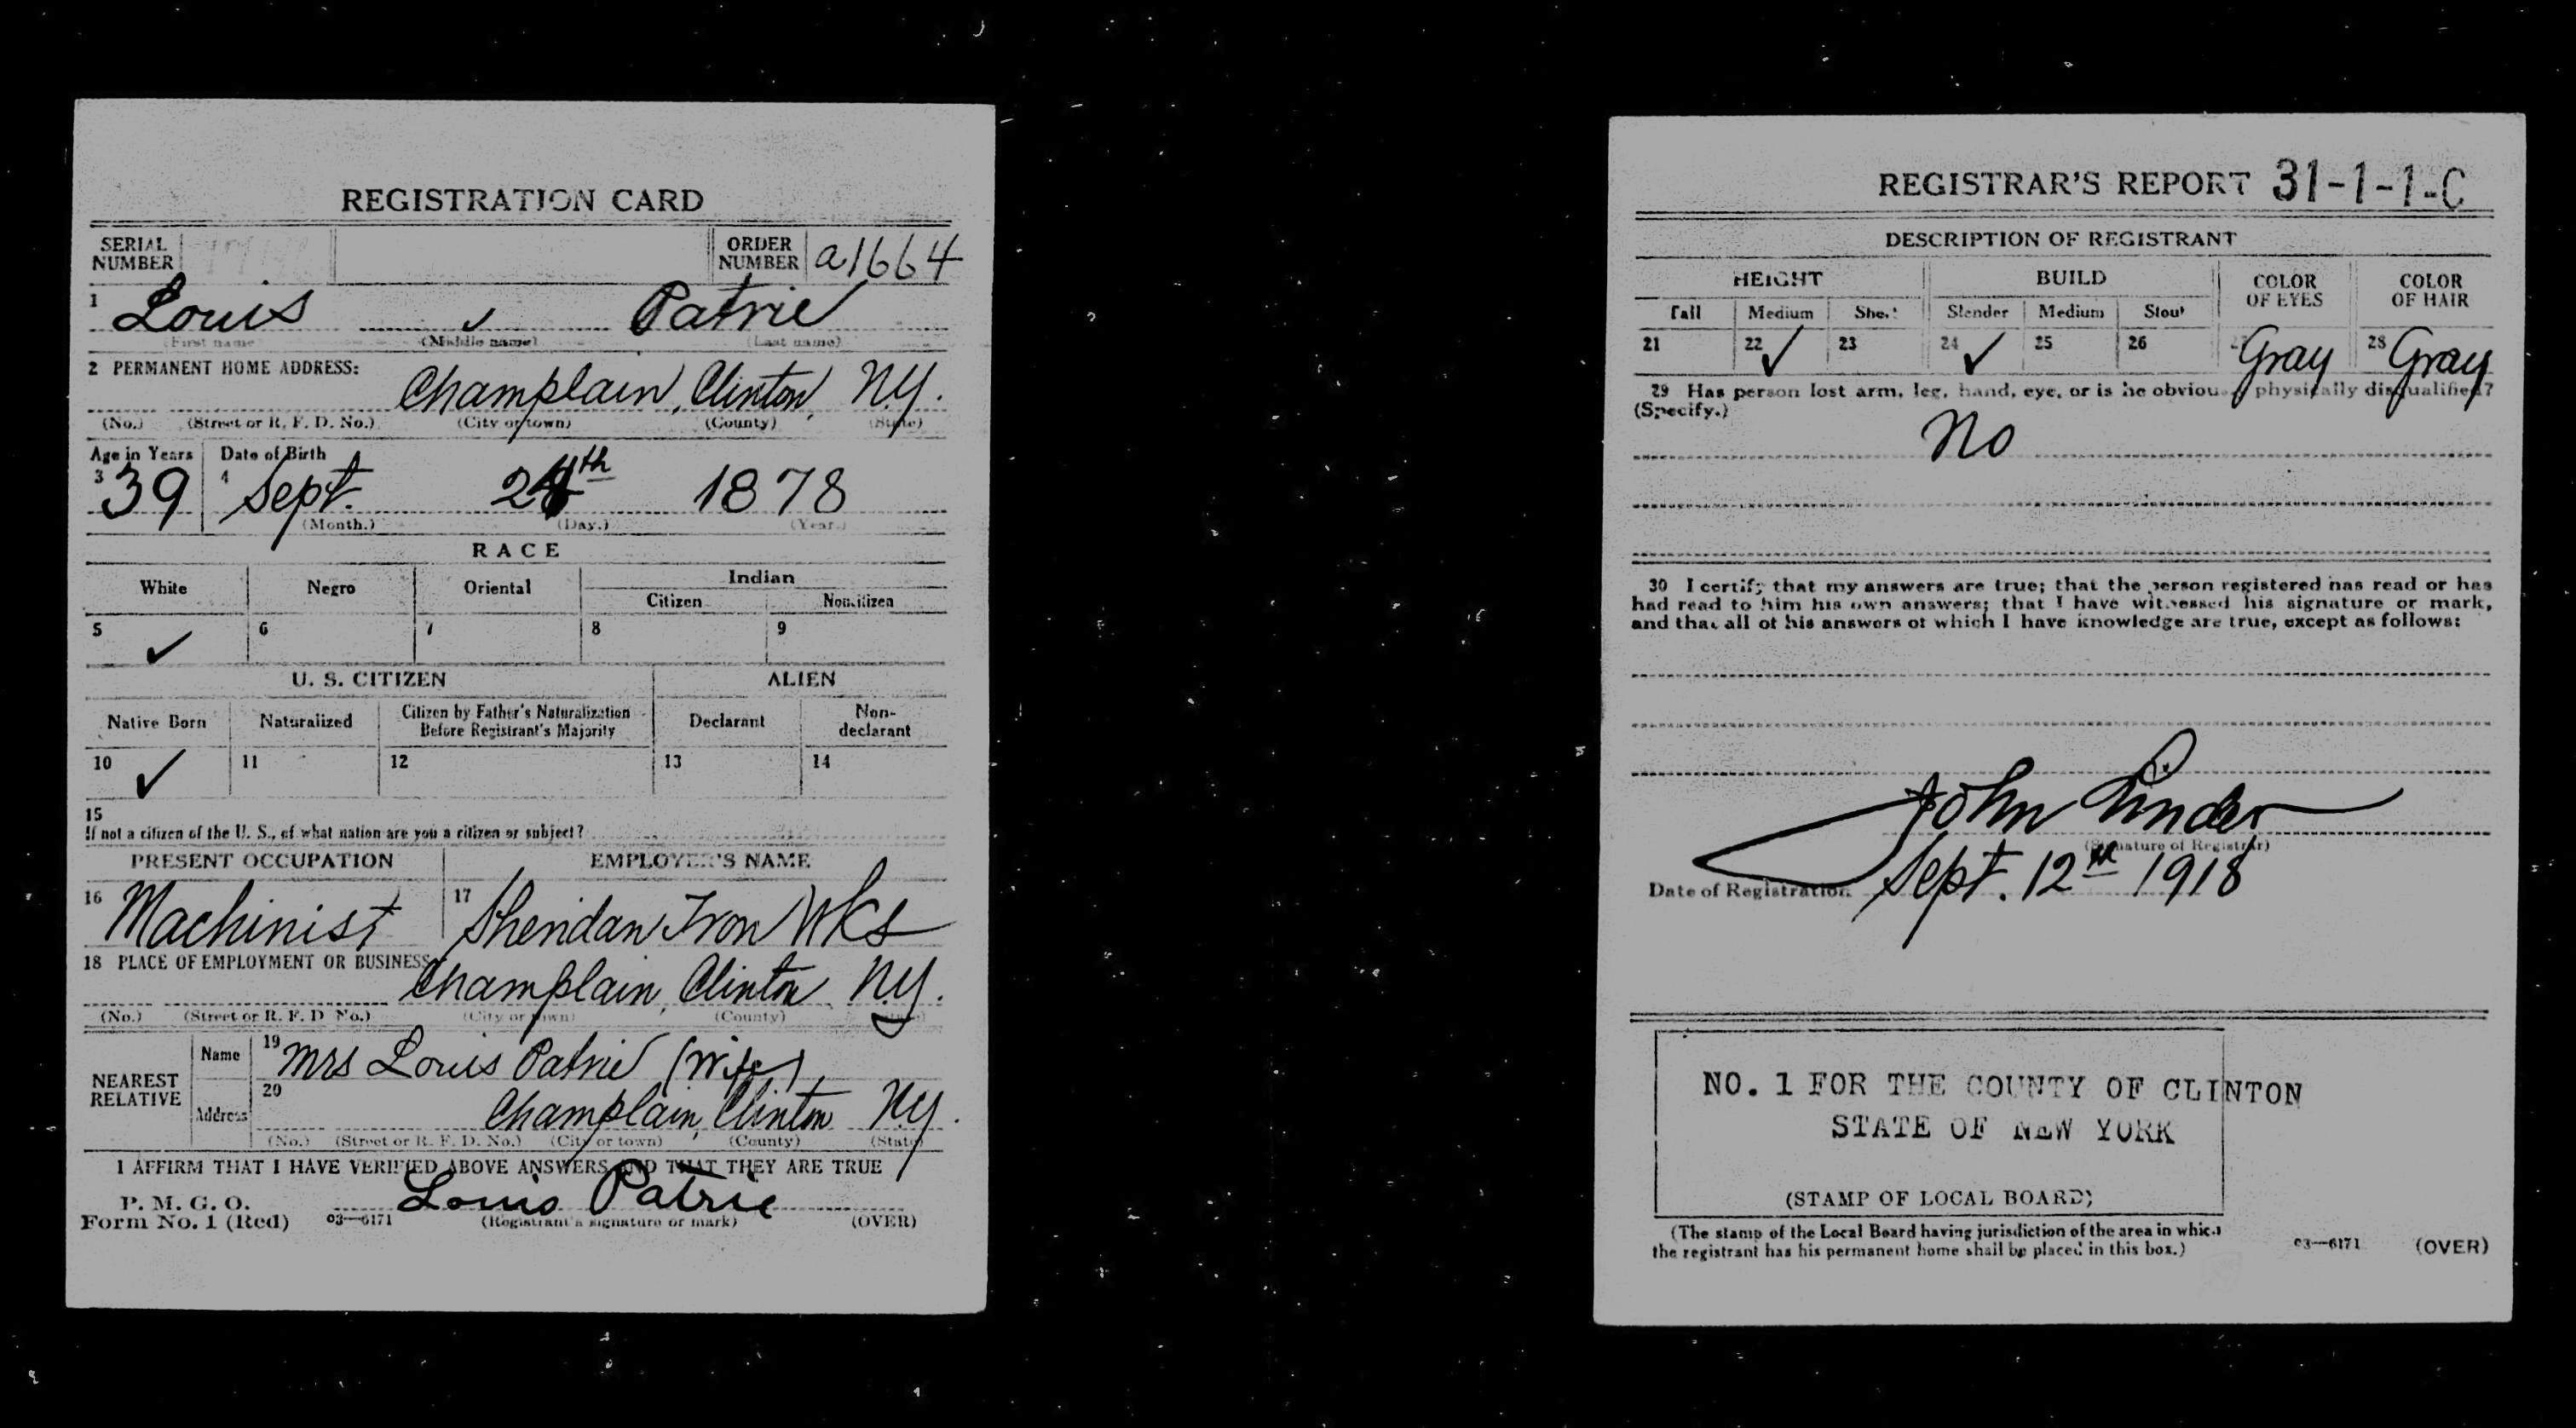 REGISTRATION CARD
SERIAL NUMBER
ORDER NUMBER a1664
1 Louis ✓ Patrie
(First name) (Middle name) (Last name)
2 PERMANENT HOME ADDRESS:
Champlain, Clinton, N.Y.
(No.) (Street or R. F. D. No.) (City or town) (County) (State)
Age in Years Date of Birth
3 39 4 Sept. 1878
(Month.) (Day.) (Year.)
RACE
White Negro Oriental Indian
Citizen Noncitizen
5 ✓ 6 7 8 9
U. S. CITIZEN ALIEN
Native Born Naturalized Citizen by Father's Naturalization Before Registrant's Majority Declarant Non-declarant
10 ✓ 11 12 13 14
15
If not a citizen of the U. S., of what nation are you a citizen or subject?
PRESENT OCCUPATION EMPLOYER'S NAME
16 Machinist 17 Sheridan Iron Wks
18 PLACE OF EMPLOYMENT OR BUSINESS
Champlain, Clinton, N.Y.
(No.) (Street or R. F. D. No.) (City or town) (County) (State)
NEAREST RELATIVE
Name 19 Mrs Louis Patrie (Wife)
Address 20 Champlain, Clinton N.Y.
(No.) (Street or R. F. D. No.) (City or town) (County) (State)
I AFFIRM THAT I HAVE VERIFIED ABOVE ANSWERS AND THAT THEY ARE TRUE
P. M. G. O.
Form No. 1 (Red) 03—6171 Louis Patrie
(Registrant's signature or mark) (OVER)
REGISTRAR'S REPORT 31-1-1-C
DESCRIPTION OF REGISTRANT
HEIGHT BUILD COLOR OF EYES COLOR OF HAIR
Tall Medium Short Slender Medium Stout
21 22 ✓ 23 24 ✓ 25 26 27 Gray 28 Gray
29 Has person lost arm, leg, hand, eye, or is he obviously physically disqualified?
(Specify.)
No
30 I certify that my answers are true; that the person registered has read or has
had read to him his own answers; that I have witnessed his signature or mark,
and that all of his answers of which I have knowledge are true, except as follows:
John Linder
(Signature of Registrar)
Date of Registration Sept. 12th 1918
NO. 1 FOR THE COUNTY OF CLINTON
STATE OF NEW YORK
(STAMP OF LOCAL BOARD)
(The stamp of the Local Board having jurisdiction of the area in which
the registrant has his permanent home shall be placed in this box.)
03—6171 (OVER)